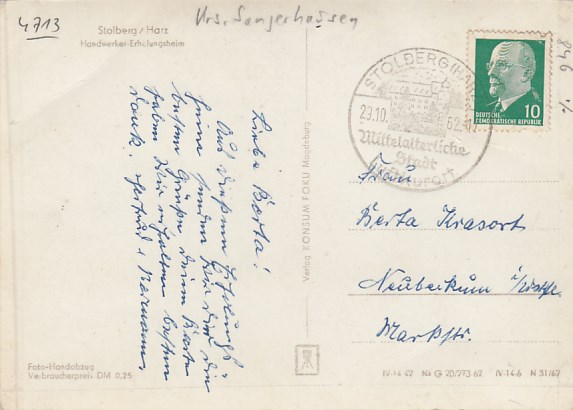 4713
Krs. Sangerhausen
Stolberg / Harz
Handwerker-Erholungsheim
846
STOLBERG (HARZ)
29.10. 62
Mittelalterliche
Stadt
Luftkurort
10
DEUTSCHE
DEMOKRATISCHE REPUBLIK
Liebe Berta!
Aus unserem Erholungs-
heim senden wir dir die
besten Grüße. Deine Karte
haben wir erhalten besten
Dank. Gertrud + Hermann
Verlag KONSUM FOKU Magdeburg
Frau
Berta Krasort
Neubeckum i/Westf.
Marktstr.
Foto-Handabzug
Verbraucherpreis DM 0,25
IV-14-42 Na G 20/273/62 IV-14-6 N 31/62